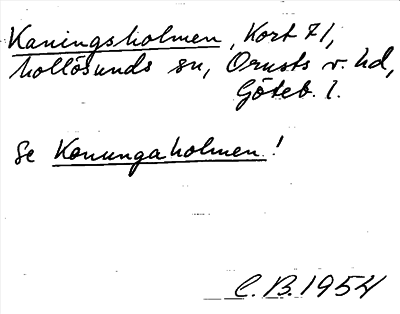 Kaningsholmen, Kort 71,
hollösunds sn, Orusts v. hd,
Göteb. l.
Se Konungaholmen!
C. B. 1954